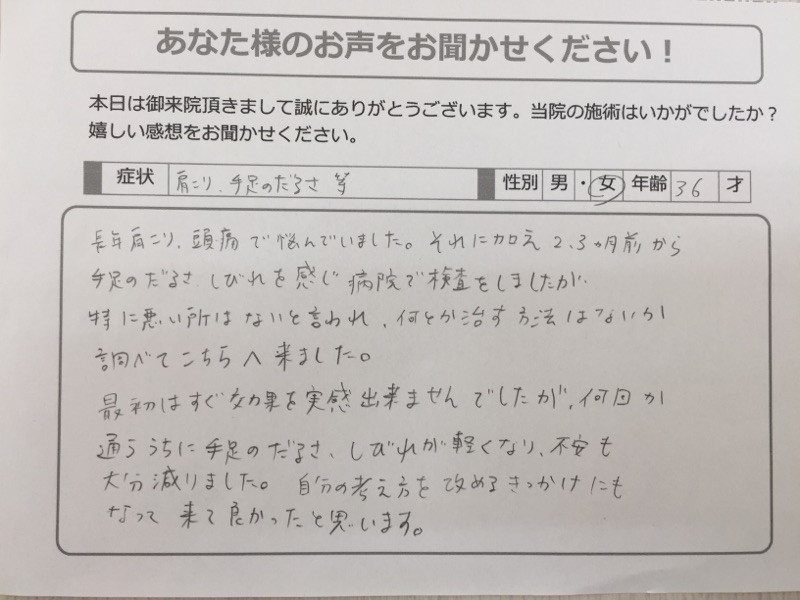 あなた様のお声をお聞かせください！
本日は御来院頂きまして誠にありがとうございます。当院の施術はいかがでしたか？
嬉しい感想をお聞かせください。
症状 肩こり、手足のだるさ 等 性別 男・女 年齢 36 才
長年肩こり、頭痛で悩んでいました。それに加え2、3ヵ月前から
手足のだるさ、しびれを感じ病院で検査をしましたが
特に悪い所はないと言われ、何とか治す方法はないか
調べてこちらへ来ました。
最初はすぐ効果を実感出来ませんでしたが、何回か
通ううちに手足のだるさ、しびれが軽くなり、不安も
大分減りました。自分の考え方を改めるきっかけにも
なって来て良かったと思います。